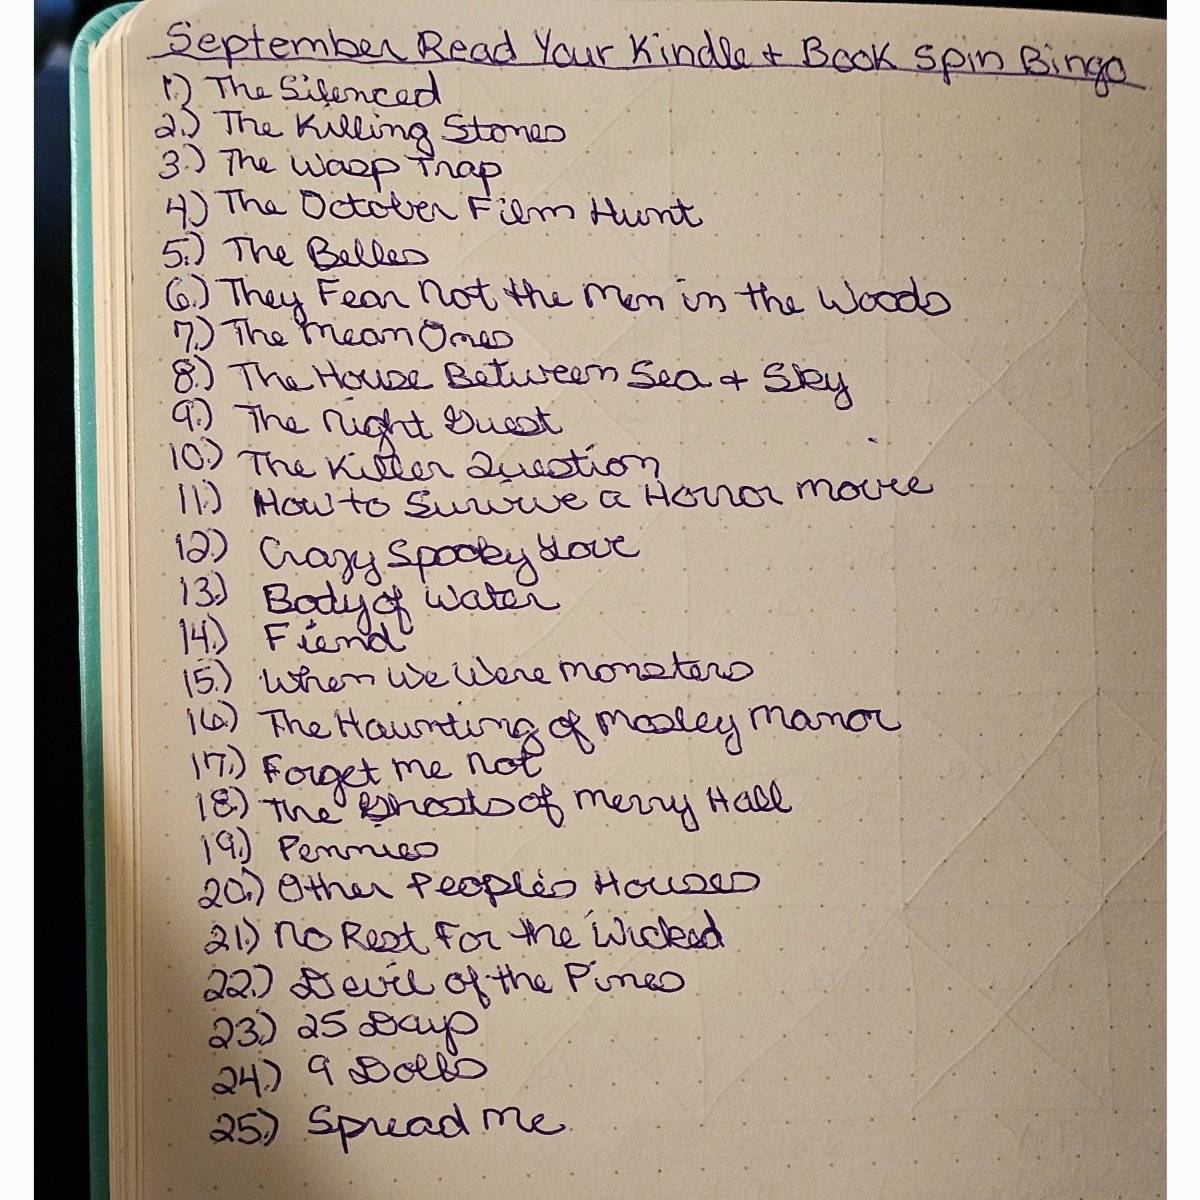 September Read Your Kindle + Book Spin Bingo
1.) The Silenced
2.) The Killing Stones
3.) The Wasp Trap
4.) The October Film Hunt
5.) The Belles
6.) They Fear Not the Men in the Woods
7.) The Mean Ones
8.) The House Between Sea + Sky
9.) The Night Guest
10.) The Killer Question
11.) How to Survive a Horror Movie
12.) Crazy Spooky Love
13.) Body of Water
14.) Fiend
15.) When We Were Monsters
16.) The Haunting of Mosley Manor
17.) Forget Me Not
18.) The Ghosts of Merry Hall
19.) Pennies
20.) Other People's Houses
21.) No Rest For the Wicked
22.) Devil of the Pines
23.) 25 Days
24.) 9 Dolls
25.) Spread Me